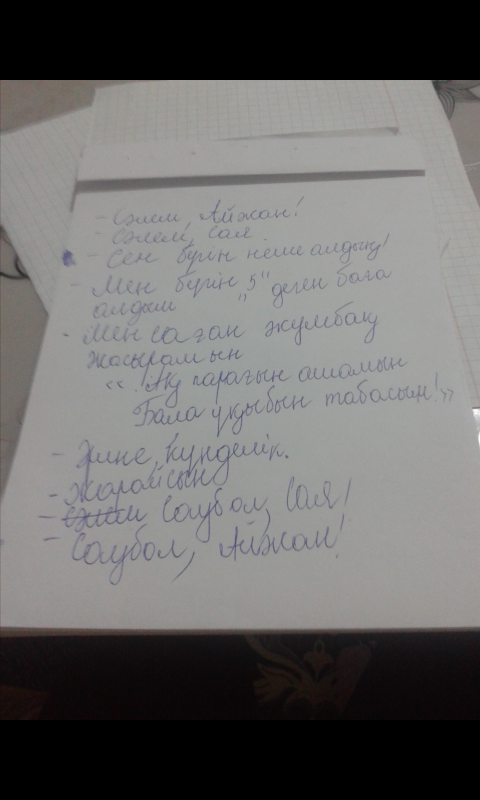 - Сәлем, Айжан!
- Сәлем, Сая
- Сен бүгін неше алдың!
- Мен бүгін "5" деген баға
алдым
- Мен саған жұмбақ
жасырамын
«!Ақ парағын ашамын
Бала ұқыбын табасың!»
- Әлне, күнделік.
- Жарайсын
- Сәлем Саубол, Сая!
- Саубол, Айжан!